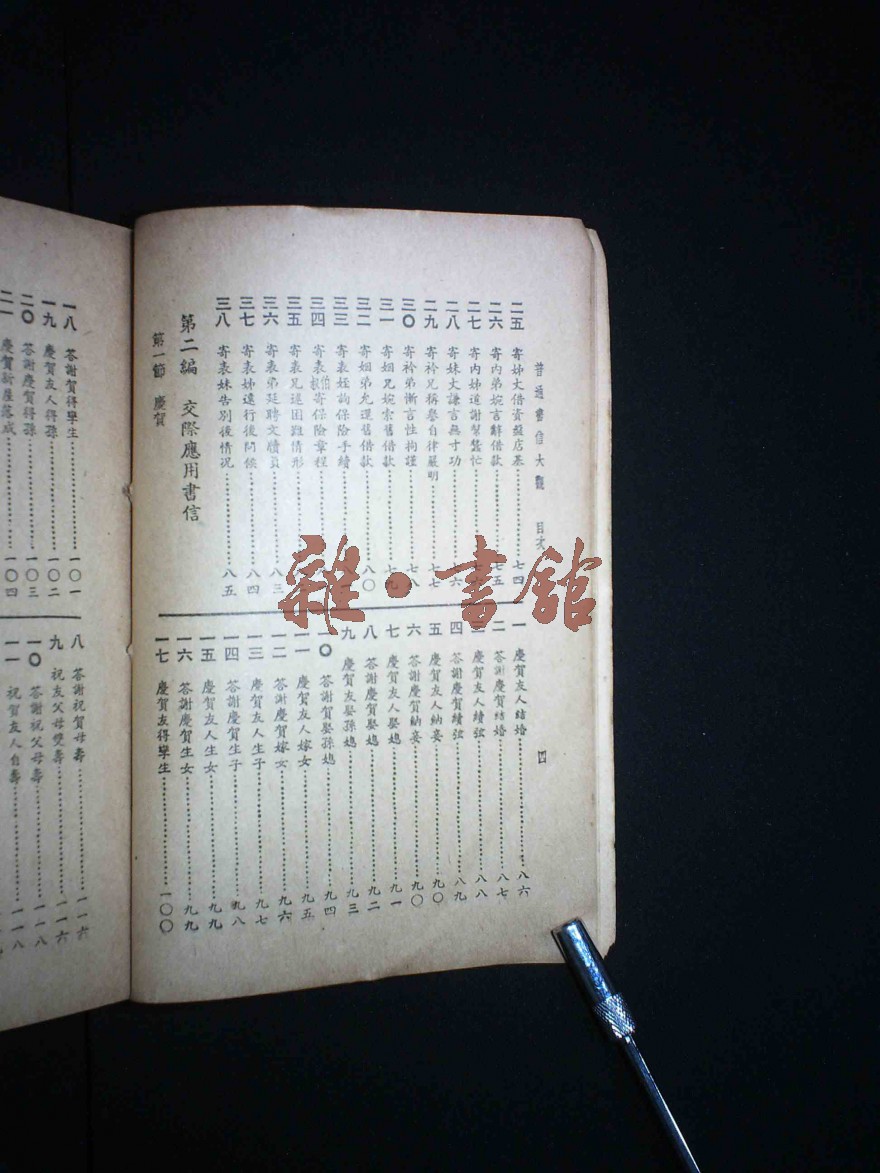 普通書信大觀 目次
四
二五 寄姊丈借資盤店基 七四
二六 寄內弟婉言辭借款 七五
二七 寄內姊道謝幫蠶忙
二八 寄妹丈謙言無寸功 六
二九 寄衿兄稱譽自律嚴明 七七
三〇 寄衿弟慚言性拘謹 七八
三一 寄姻兄婉索舊借款 七九
三二 寄姻弟允還舊借款 八〇
三三 寄表姪詢保險手續
三四 寄表伯叔寄保險章程
三五 寄表兄述困難情形
三六 寄表弟廷聘文牘員 八三
三七 寄表姊遠行後問候 八四
三八 寄表妹告別後情况 八五
第二編 交際應用書信
第一節 慶賀
一 慶賀友人結婚 八六
二 答謝慶賀結婚 八七
三 慶賀友人續弦 八八
四 答謝慶賀續弦 八九
五 慶賀友人納妾 九〇
六 答謝慶賀納妾 九〇
七 慶賀友人娶媳 九一
八 答謝慶賀娶媳 九二
九 慶賀友娶孫媳 九三
一〇 答謝賀娶孫媳 九四
一一 慶賀友人嫁女 九五
一二 答謝慶賀嫁女 九六
一三 慶賀友人生子 九七
一四 答謝慶賀生子 九八
一五 慶賀友人生女 九九
一六 答謝慶賀生女 九九
一七 慶賀友得孿生 一〇〇
一八 答謝賀得孿生 一〇一
一九 慶賀友人得孫 一〇二
二〇 答謝慶賀得孫 一〇三
二一 慶賀新屋落成 一〇四
八 答謝祝賀母壽 一一六
九 祝友父母雙壽 一一六
一〇 答謝祝父母壽 一一八
一一 祝賀友人自壽 一一八
雜·書館